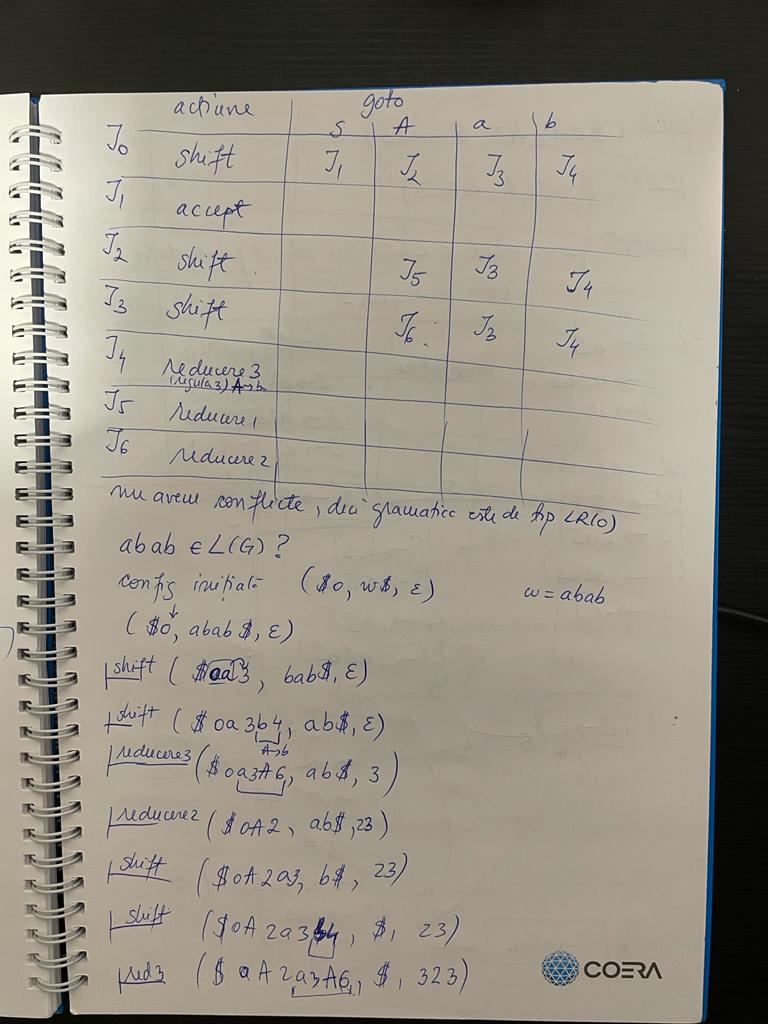 acțiune goto
S A a b
J0 shift J1 J2 J3 J4
J1 accept
J2 shift J5 J3 J4
J3 shift J6 J3 J4
J4 reducere 3
(regula 3) A→b
J5 reducere 1
J6 reducere 2
nu avem conflicte, deci gramatica este de tip LR(0)
abab ∈ L(G) ?
config inițială ($0, w$, ε) w = abab
($0, abab$, ε)
shift ($0a3, bab$, ε)
shift ($0a3b4, ab$, ε)
A→b
reducere3 ($0a3A6, ab$, 3)
reducere2 ($0A2, ab$, 23)
shift ($0A2a3, b$, 23)
shift ($0A2a3b4, $, 23)
red3 ($0A2a3A6, $, 323)
COERA